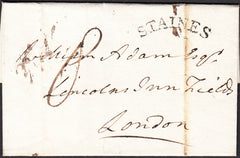 STAINES
William Adam Esqr
Lincolns Inn Fields
London